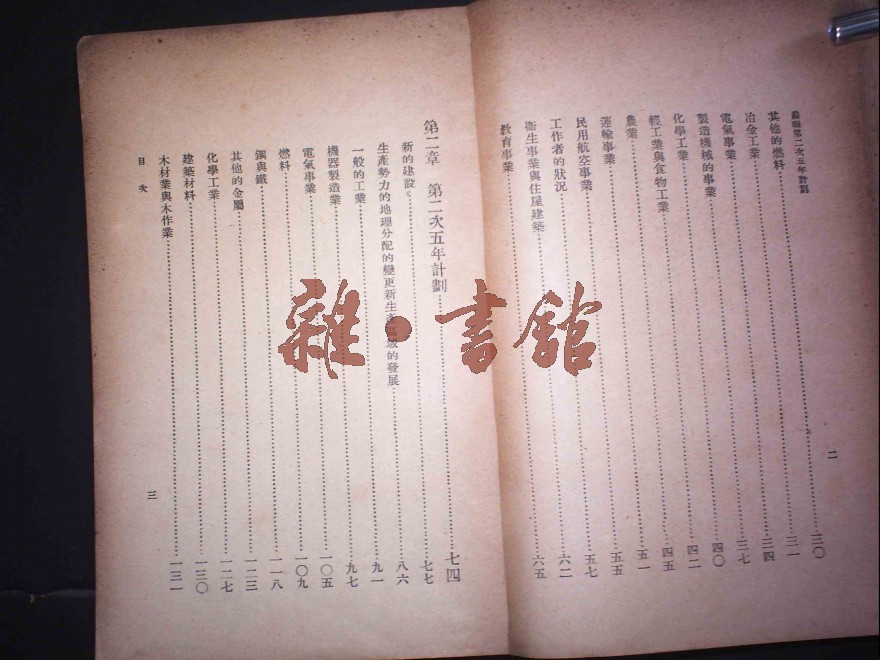 蘇聯第二次五年計劃
二
其他的燃料……三〇
冶金工業……三一
電氣事業……三四
製造機械的事業……三七
化學工業……四〇
輕工業與食物工業……四二
農業……四五
運輸事業……五一
民用航空事業……五五
工作者的狀況……五七
衛生事業與住屋建築……六二
教育事業……六五
第二章 第二次五年計劃……七四
新的建設……七七
生產勢力的地理分配的變更新生產區域的發展……八六
一般的工業……九一
機器製造業……九七
電氣事業……一〇五
燃料……一〇九
鋼與鐵……一一八
其他的金屬……一二三
化學工業……一二七
建築材料……一三〇
木材業與木作業……一三一
目次
三
雜·書館